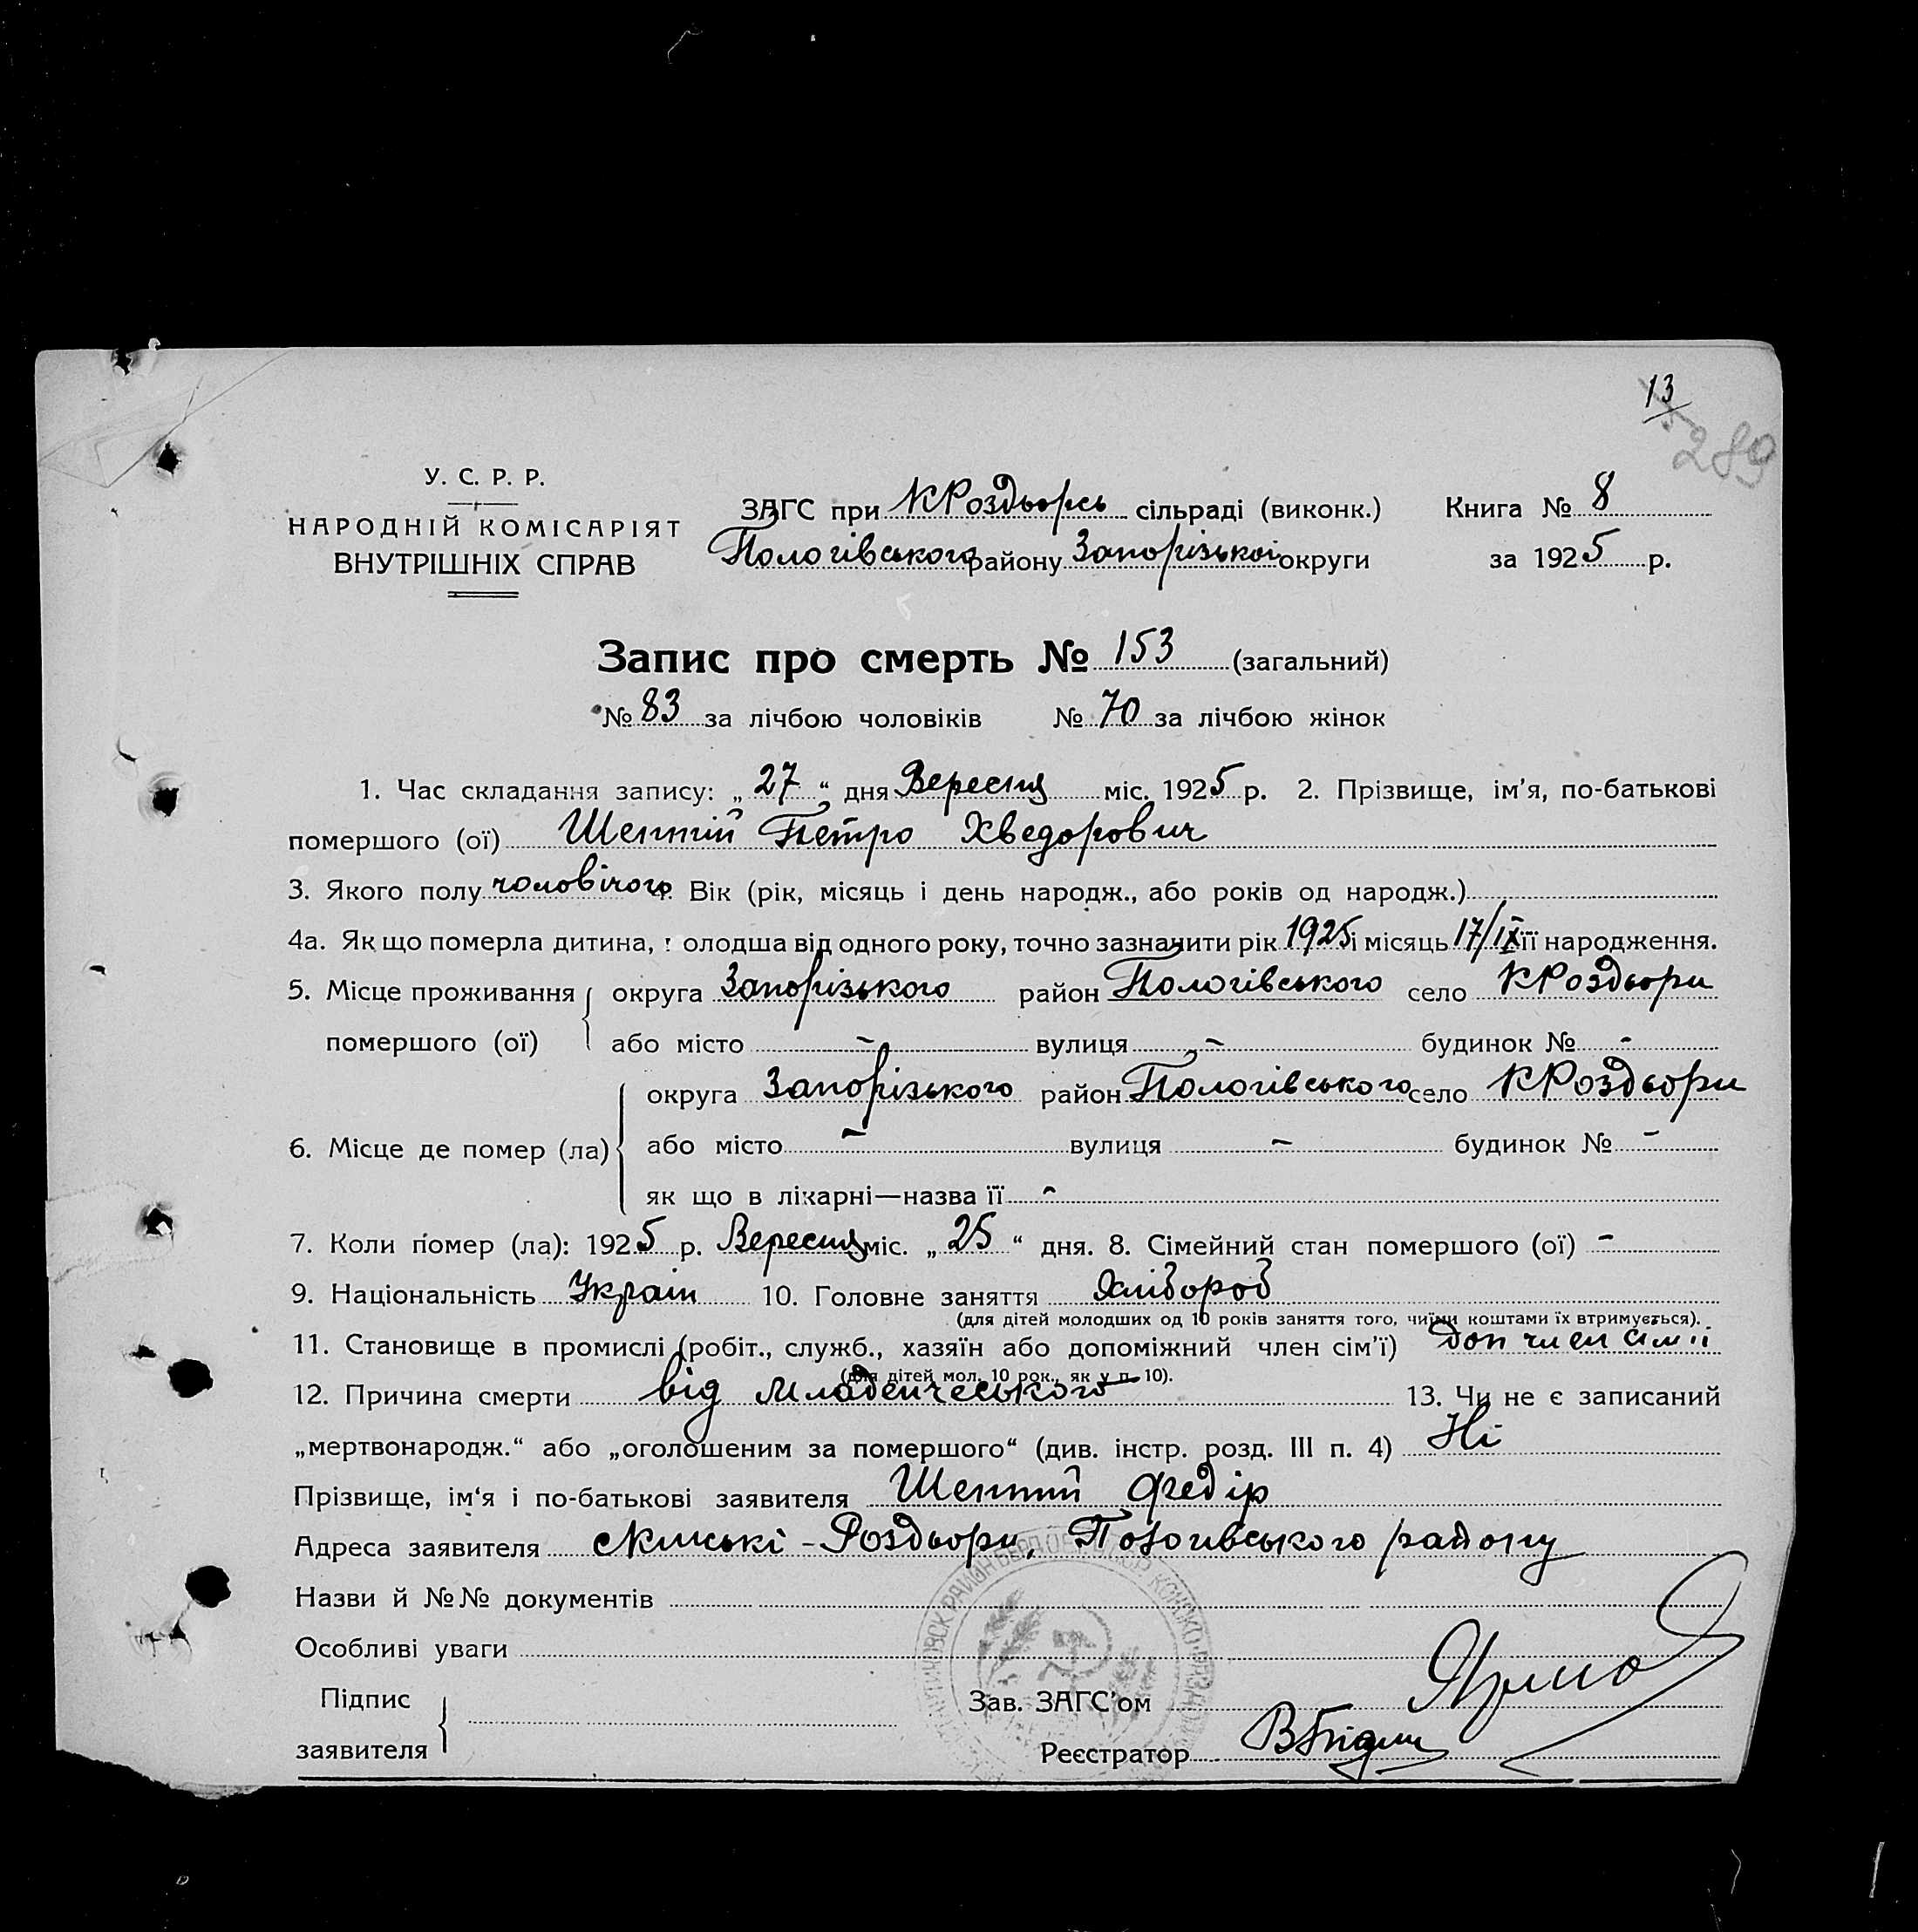 13
289
У. С. Р. Р.
НАРОДНІЙ КОМІСАРІЯТ
ВНУТРІШНІХ СПРАВ
ЗАГС при КРоздьорсь сільраді (виконк.) Книга № 8
Пологівського району Запорізької округи за 1925 р.
Запис про смерть № 153 (загальний)
№ 83 за лічбою чоловіків № 70 за лічбою жінок
1. Час складання запису: „ 27 “ дня Вересня міс. 1925 р. 2. Прізвище, ім'я, по-батькові
помершого (ої) Шептій Петро Хведорович
3. Якого полу чоловічого 4. Вік (рік, місяць і день народж., або років од народж.)
4а. Як що померла дитина, молодша від одного року, точно зазначити рік 1925 і місяць 17/IX її народження.
5. Місце проживання округа Запорізького район Пологівського село КРоздьори
помершого (ої) або місто - вулиця - будинок № -
округа Запорізького район Пологівського село КРоздьори
6. Місце де помер (ла) або місто - вулиця - будинок № -
як що в лікарні—назва її -
7. Коли помер (ла): 1925 р. Вересня міс. „ 25 “ дня. 8. Сімейний стан помершого (ої) -
9. Національність Україн 10. Головне заняття Хлібороб
(для дітей молодших од 10 років заняття того, чиїми коштами їх втримується).
11. Становище в промислі (робіт., служб., хазяїн або допоміжний член сім'ї) доп член сімії
(для дітей мол. 10 рок., як у п. 10).
12. Причина смерти від младенчеського 13. Чи не є записаний
„мертвонародж.“ або „оголошеним за помершого“ (див. інстр. розд. III п. 4) Ні
Прізвище, ім'я і по-батькові заявителя Шептій Федір
Адреса заявителя Роздьори, Пологівського району
Назви й №№ документів
Особливі уваги
Підпис
заявителя
Зав. ЗАГС'ом
Реєстратор